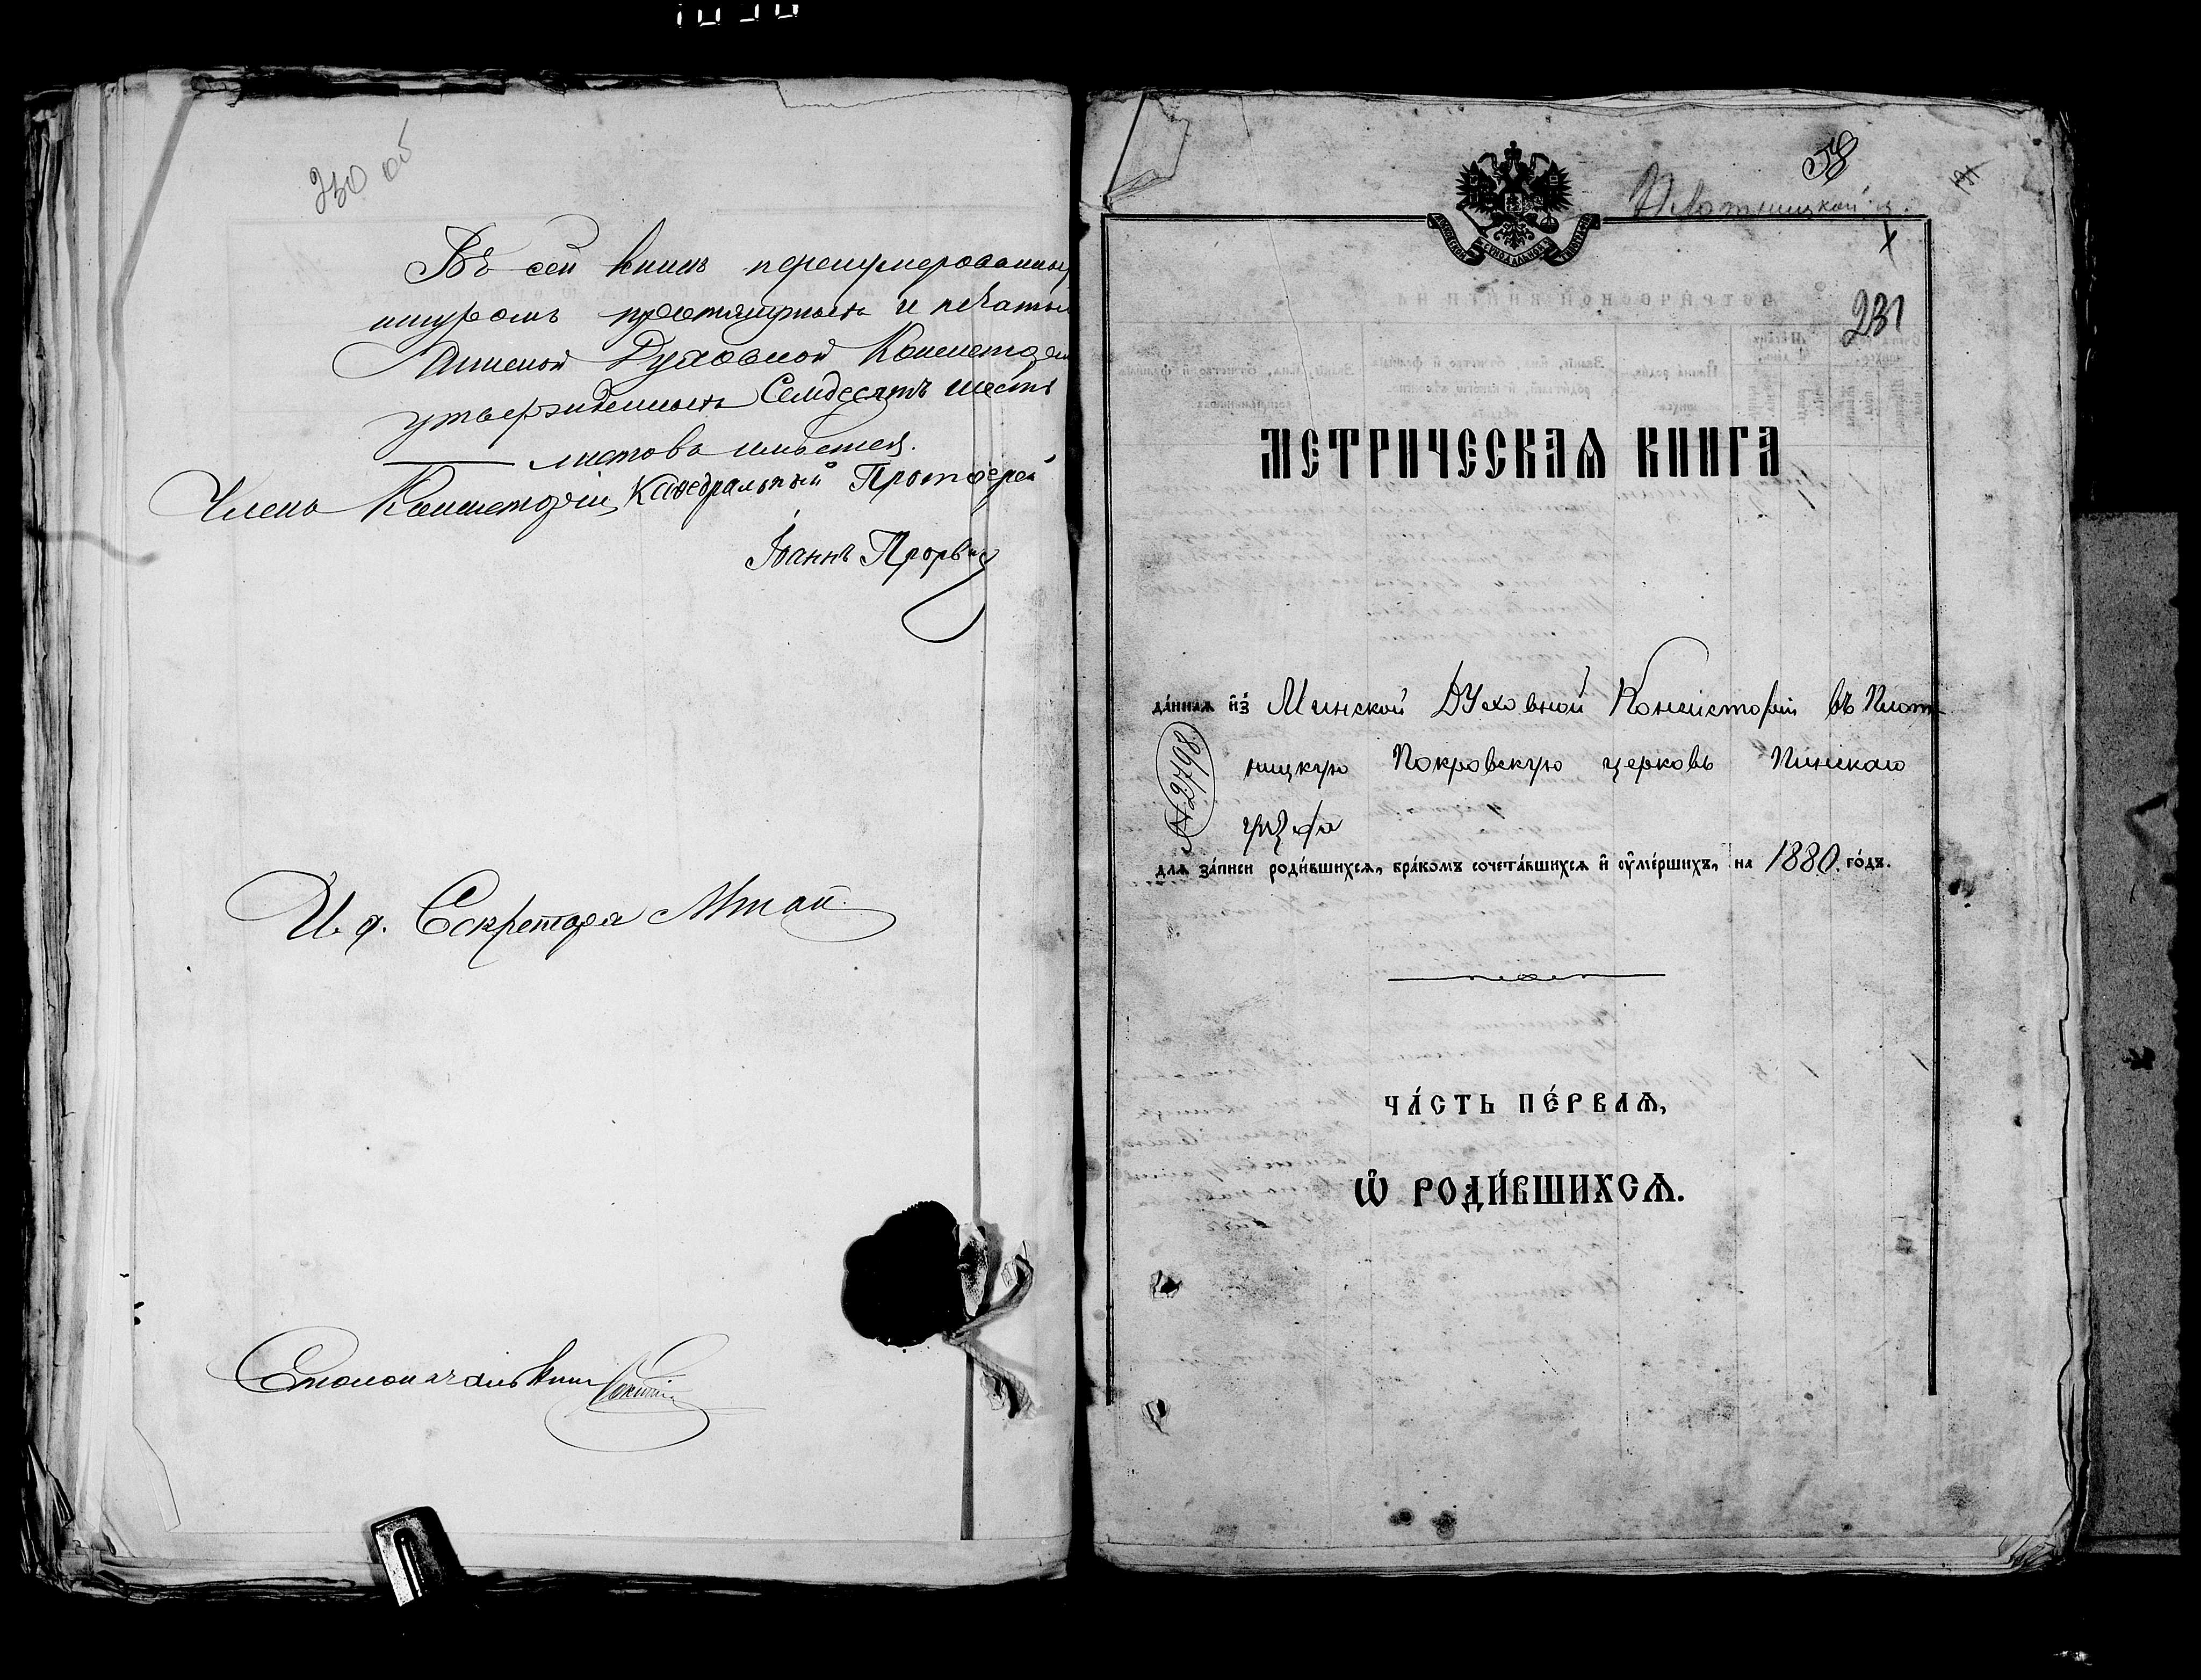 230 об
Въ сей книгѣ перенумерованныхъ
шнуромъ и печатью
Минской Духовной Консисторіи
утвержденныхъ Семдесятъ шесть
листовъ имѣется.
Членъ Консисторіи, Каѳедральный Протоіерей
Іоаннъ
И. д. Секретаря
Столоначальникъ
Плотницкой ц.
231
МЕТРИЧЕСКАѦ КНИГА
да́ннаѧ и҆з̾ Минской Духовной Консисторіи въ Плот-
ницкую Покровскую церковь Пинскаго
уѣзда
№ 2798
длѧ за́писи роди́вшихсѧ, бра́комъ сочета́вшихсѧ и҆ ᲂу҆ме́ршихъ, на 1880. го́дъ.
ЧА́СТЬ ПЕ́РВАѦ,
Ѽ РОДИ́ВШИХСѦ.